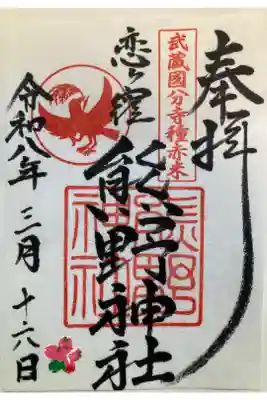 奉拝
武蔵国分寺種赤米
恋ヶ窪
熊野神社
熊野神社
令和八年 三月 十六日